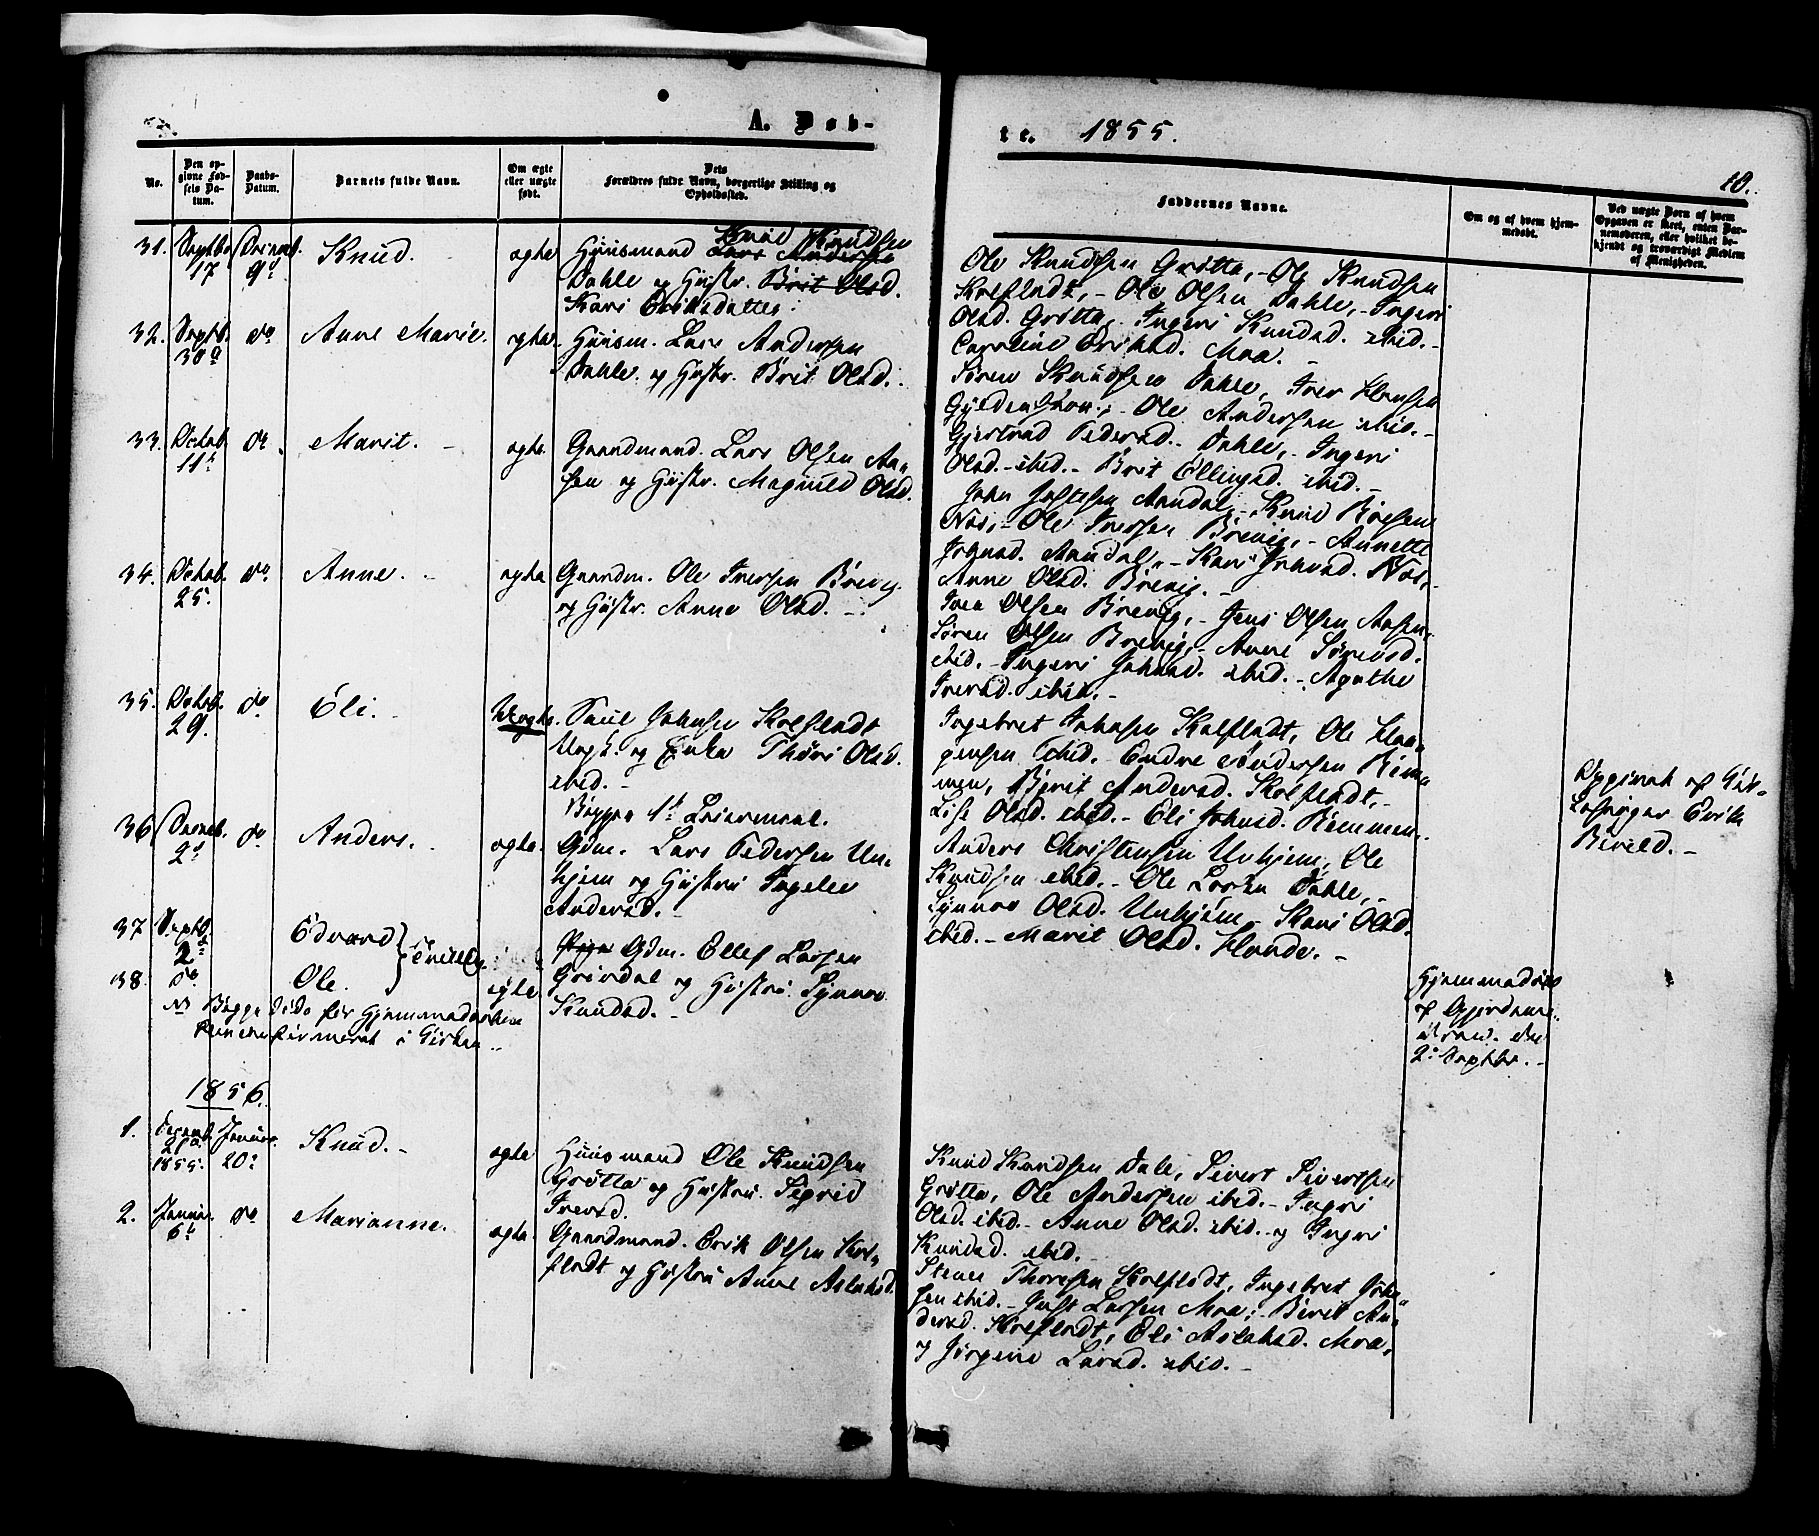 A. Døb-
te. 1855.
10.
No.
Den op-
givne Fød-
sels Da-
tum.
Daabs-
Datum.
Barnets fulde Navn.
Om ægte
eller uægte
født.
Dets
Forældres fulde Navn, borgerlige Stilling og
Opholdssted.
Faddernes Navne.
Om og af hvem hjem-
medøbt.
Ved uægte Børn af hvem
Opgaven er skeet, enten Bar-
nemoderen, eller hvilket be-
kjendt og troværdigt Medlem
af Menigheden.
31. Septbr. 17 Knud. ægte
Knud Knudsen
Huusmand Lars Andersen
Dahle og Hustr. Brit Olsd.
Kari Eriksdatter.
Ole Knudsen Grøtta, - Ole Knudsen
Kolflodt, - Ole Olsen Dahle, - Ingeri
Olsd. Grøtta, Ingeri Knudsd. ibid. -
Caroline Eriksd. Moa. -
32. Septb. 30 do Anne Marie. ægte.
Huusm. Lars Andersen
Dahle og Hustr. Brit Olsd.
Søren Knudsen Dahle, Iver Hansen
Gyldenskov, - Ole Andersen ibid. -
Gjertrud Pedersd. Dahle, - Ingeri
Olsd. - ibid. - Brit Ellingsd. ibid. -
33. Octob. 11 do Marit. - ægte.
Gaardmand. Lars Olsen Aa-
sen og Hustr. Magnild Olsd.
John Jostesen Aandal, - Knud Roesen
Nos, - Ole Iversen Brevig, - Annette
Johnsd. Aandal, - Kari Johnsd. Nos, -
Anne Olsd. Brevig. -
34. Octob. 25. do Anne. - ægte
Gaardm. Ole Iversen Brevig
og Hustr. Anne Olsd. -
Iver Olsen Brevig, - Jens Olsen Aasen,
Søren Olsen Brevig, - Anne Sørensd.
ibid. - Ingeri Johnsd. ibid. - Agathe
Iversd. ibid. -
35. Octob. 29. do Eli. - Uægte.
Knud Johnsen Kolflodt
Ungk. og Enke Thøri Olsd.
ibid. -
Begges 1ste Leiermaal.
Ingebret Johnsen Kolflodt, Ole Haa-
gensen ibid. - Endre Andersen Rem-
men, Berit Andersd. Kolflodt, -
Lise Olsd. ibid. - Eli Johnsd. Remmen.
Opgivet af Kir-
kesanger Erik
Bereld. -
36 2 do Anders. ægte.
Gdm. Lars Pedersen Un-
hjem og Hustru Ingelev
Andersd. -
Anders Christensen Unhjem, Ole
Knudsen ibid. - Ole Larsen Dahle, -
Synnov Olsd. Unhjem - Kari Olsd.
ibid. - Marit Olsd. Hande. -
37 Septb. 2 Edvard
38. do Ole.
Tvillinger ægte
Gdm. Ellef Larsen
Grøvdal og Hustru. Synnov
Knudsd. -
Hjemmedøbte
af Gjordemo-
dren. den
2 Septbr. -
NB Begge døde før Hjemmedaaben
kunde confirmeret i Kirken. -
1856.
1. Decemb. 21 1855. Januar. 20 Knud. - ægte
Huusmand Ole Knudsen
Grøtta og Hustru. Sigrid
Iversd.
Knud Knudsen Dale, Sivert Sivertsen
Grøtta, Ole Andersen ibid. - Ingri
Olsd. ibid. - Anne Olsd. ibid. - og Ingeri
Knudsd. ibid. -
2. Januar. 6 do Marianne. ægte.
Gaardmand. Erik Olsen Kol-
flodt og Hustru Anne Aslaksd.
Stener Thoresen Kolflodt, Ingebret John-
sen ibid. - Just Larsen Moa, - Berit An-
dersd. Kolflodt, Eli Aslaksd. Moa,
og Jørgine Larsd. ibid. -